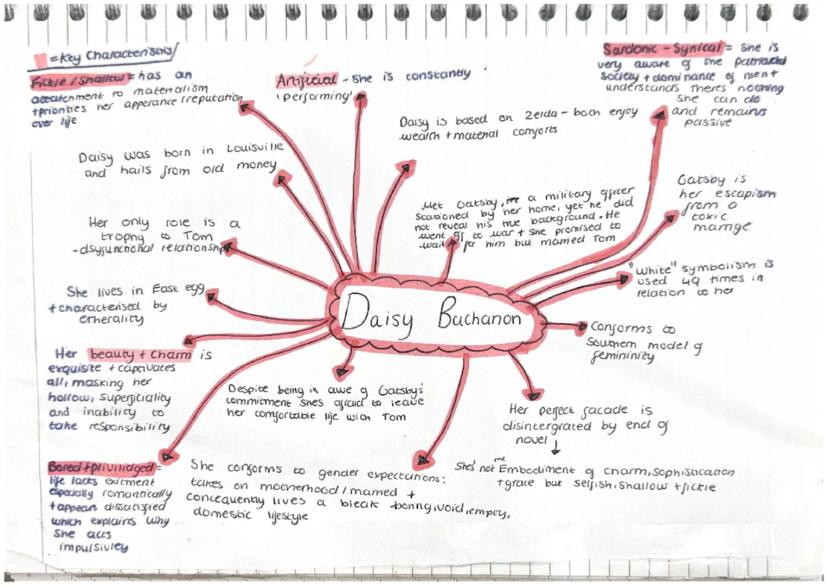 = Key Characteristics
Fickle / Shallow = has an
attatchment to materialism
+ priorities her apperance/reputation
over life
Artificial - She is constantly
'performing'
Sardonic - Synical = She is
very aware of the patriarchal
society + dominance of men +
understands theres nothing
She can do
and remains
passive
Daisy is based on Zelda - both enjoy
wealth + material comforts
Daisy was born in Louisville
and hails from old money
Met Gatsby, a military officer
stationed by her home, yet he did
not reveal his true background. He
went off to war + she promised to
wait for him but married Tom
Gatsby is
her escapism
from a
toxic
marrige
Her only role is a
trophy to Tom
- dsyfunctional relationship
"White" symbolism is
used 49 times in
relation to her
She lives in East egg
+ characterised by
etherality
Daisy Buchanon
Conforms to
Southern model of
femininity
Her beauty + charm is
exquisite + captivates
all, masking her
hollow, superficiality
and inability to
take responsibility
Despite being in awe of Gatsby's
commitment shes afraid to leave
her comfortable life with Tom
Her perfect facade is
disintergrated by end of
novel
She's not the Embodiment of charm, sophistication
+ grace but selfish, shallow + fickle
Bored + priviledged =
life lacks exitment
especially romantically
+ appears dissatisfied
which explains why
She acts
impulsivley
She conforms to gender expectations:
takes on motherhood / married +
concequently lives a bleak - being, void, empty,
domestic lifestyle